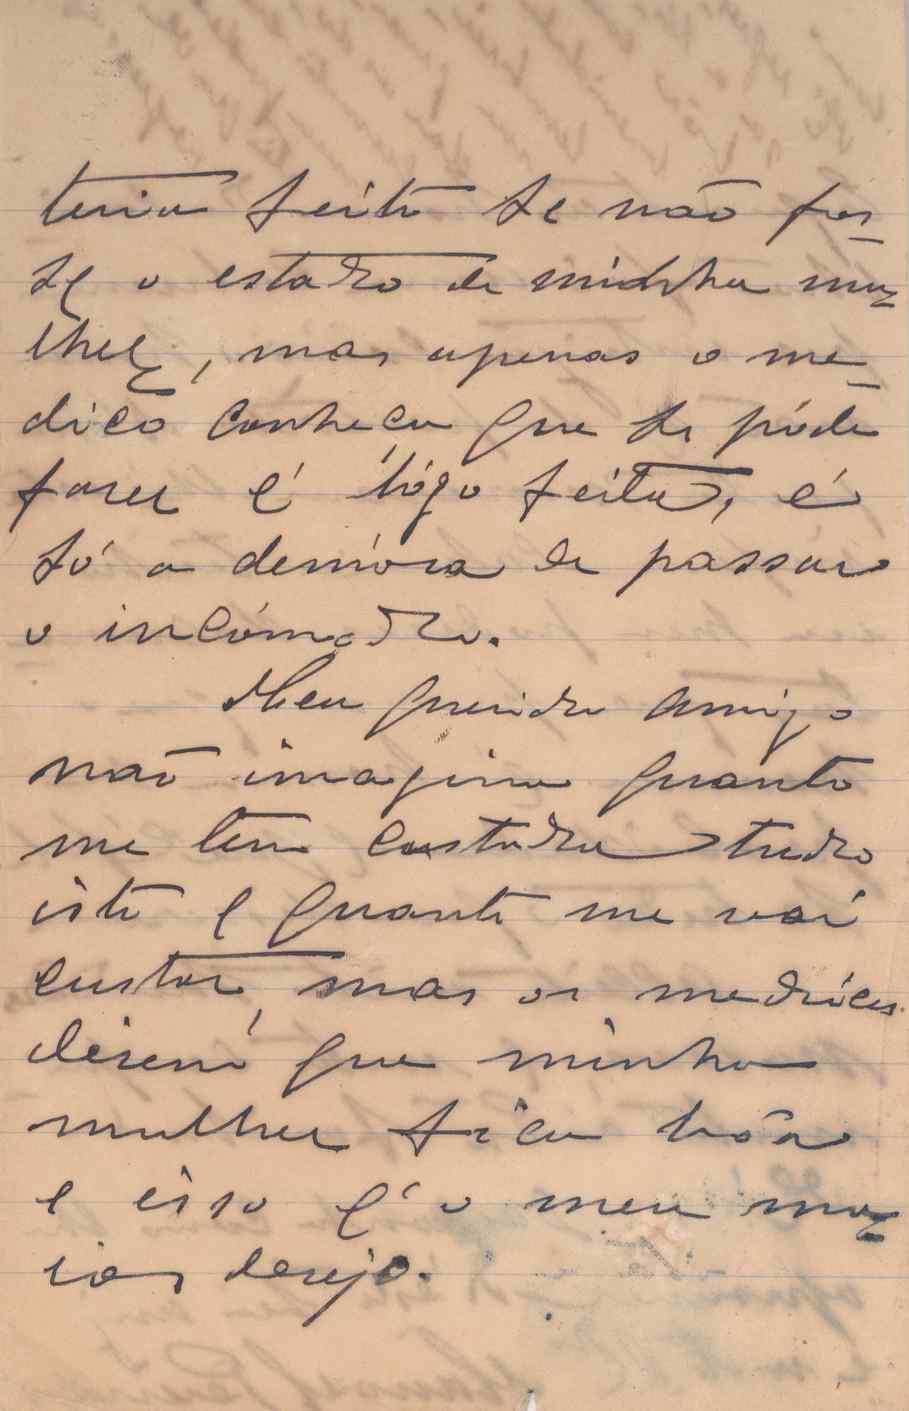 teria feito se não fos-
se o estado de minha mu-
lher, mas apenas o me-
dico conheca que se póde
faser é lógo feita, é
só a demóra de passar
o incómodo.
Meu querido amigo
não imagina quanto
me tem custado tudo
isto e quanto me vai
custar, mas os medicos
disem que minha
mulher fica bôa
e isso é o meu ma-
ior desejo.